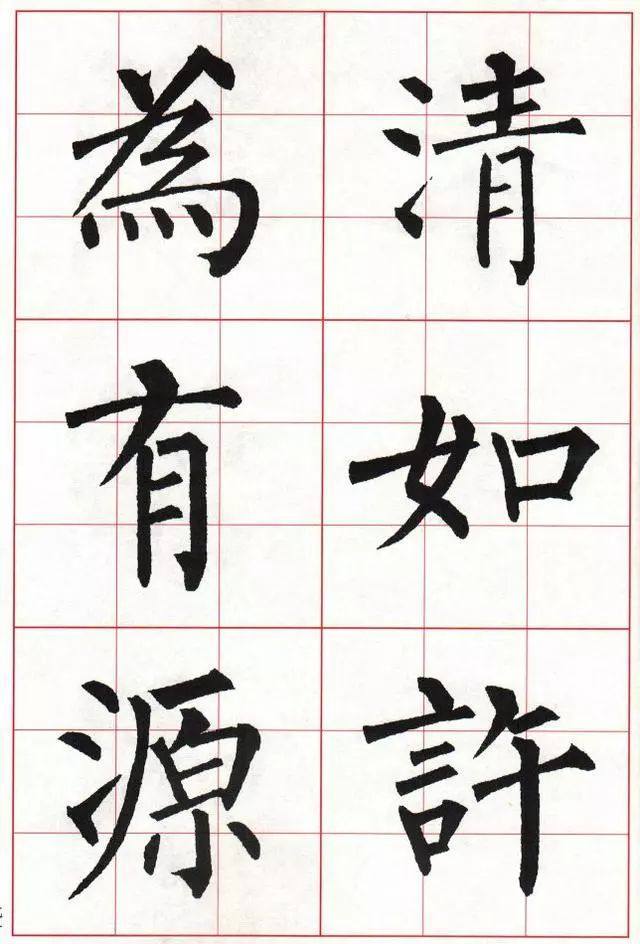 清如許
為有源